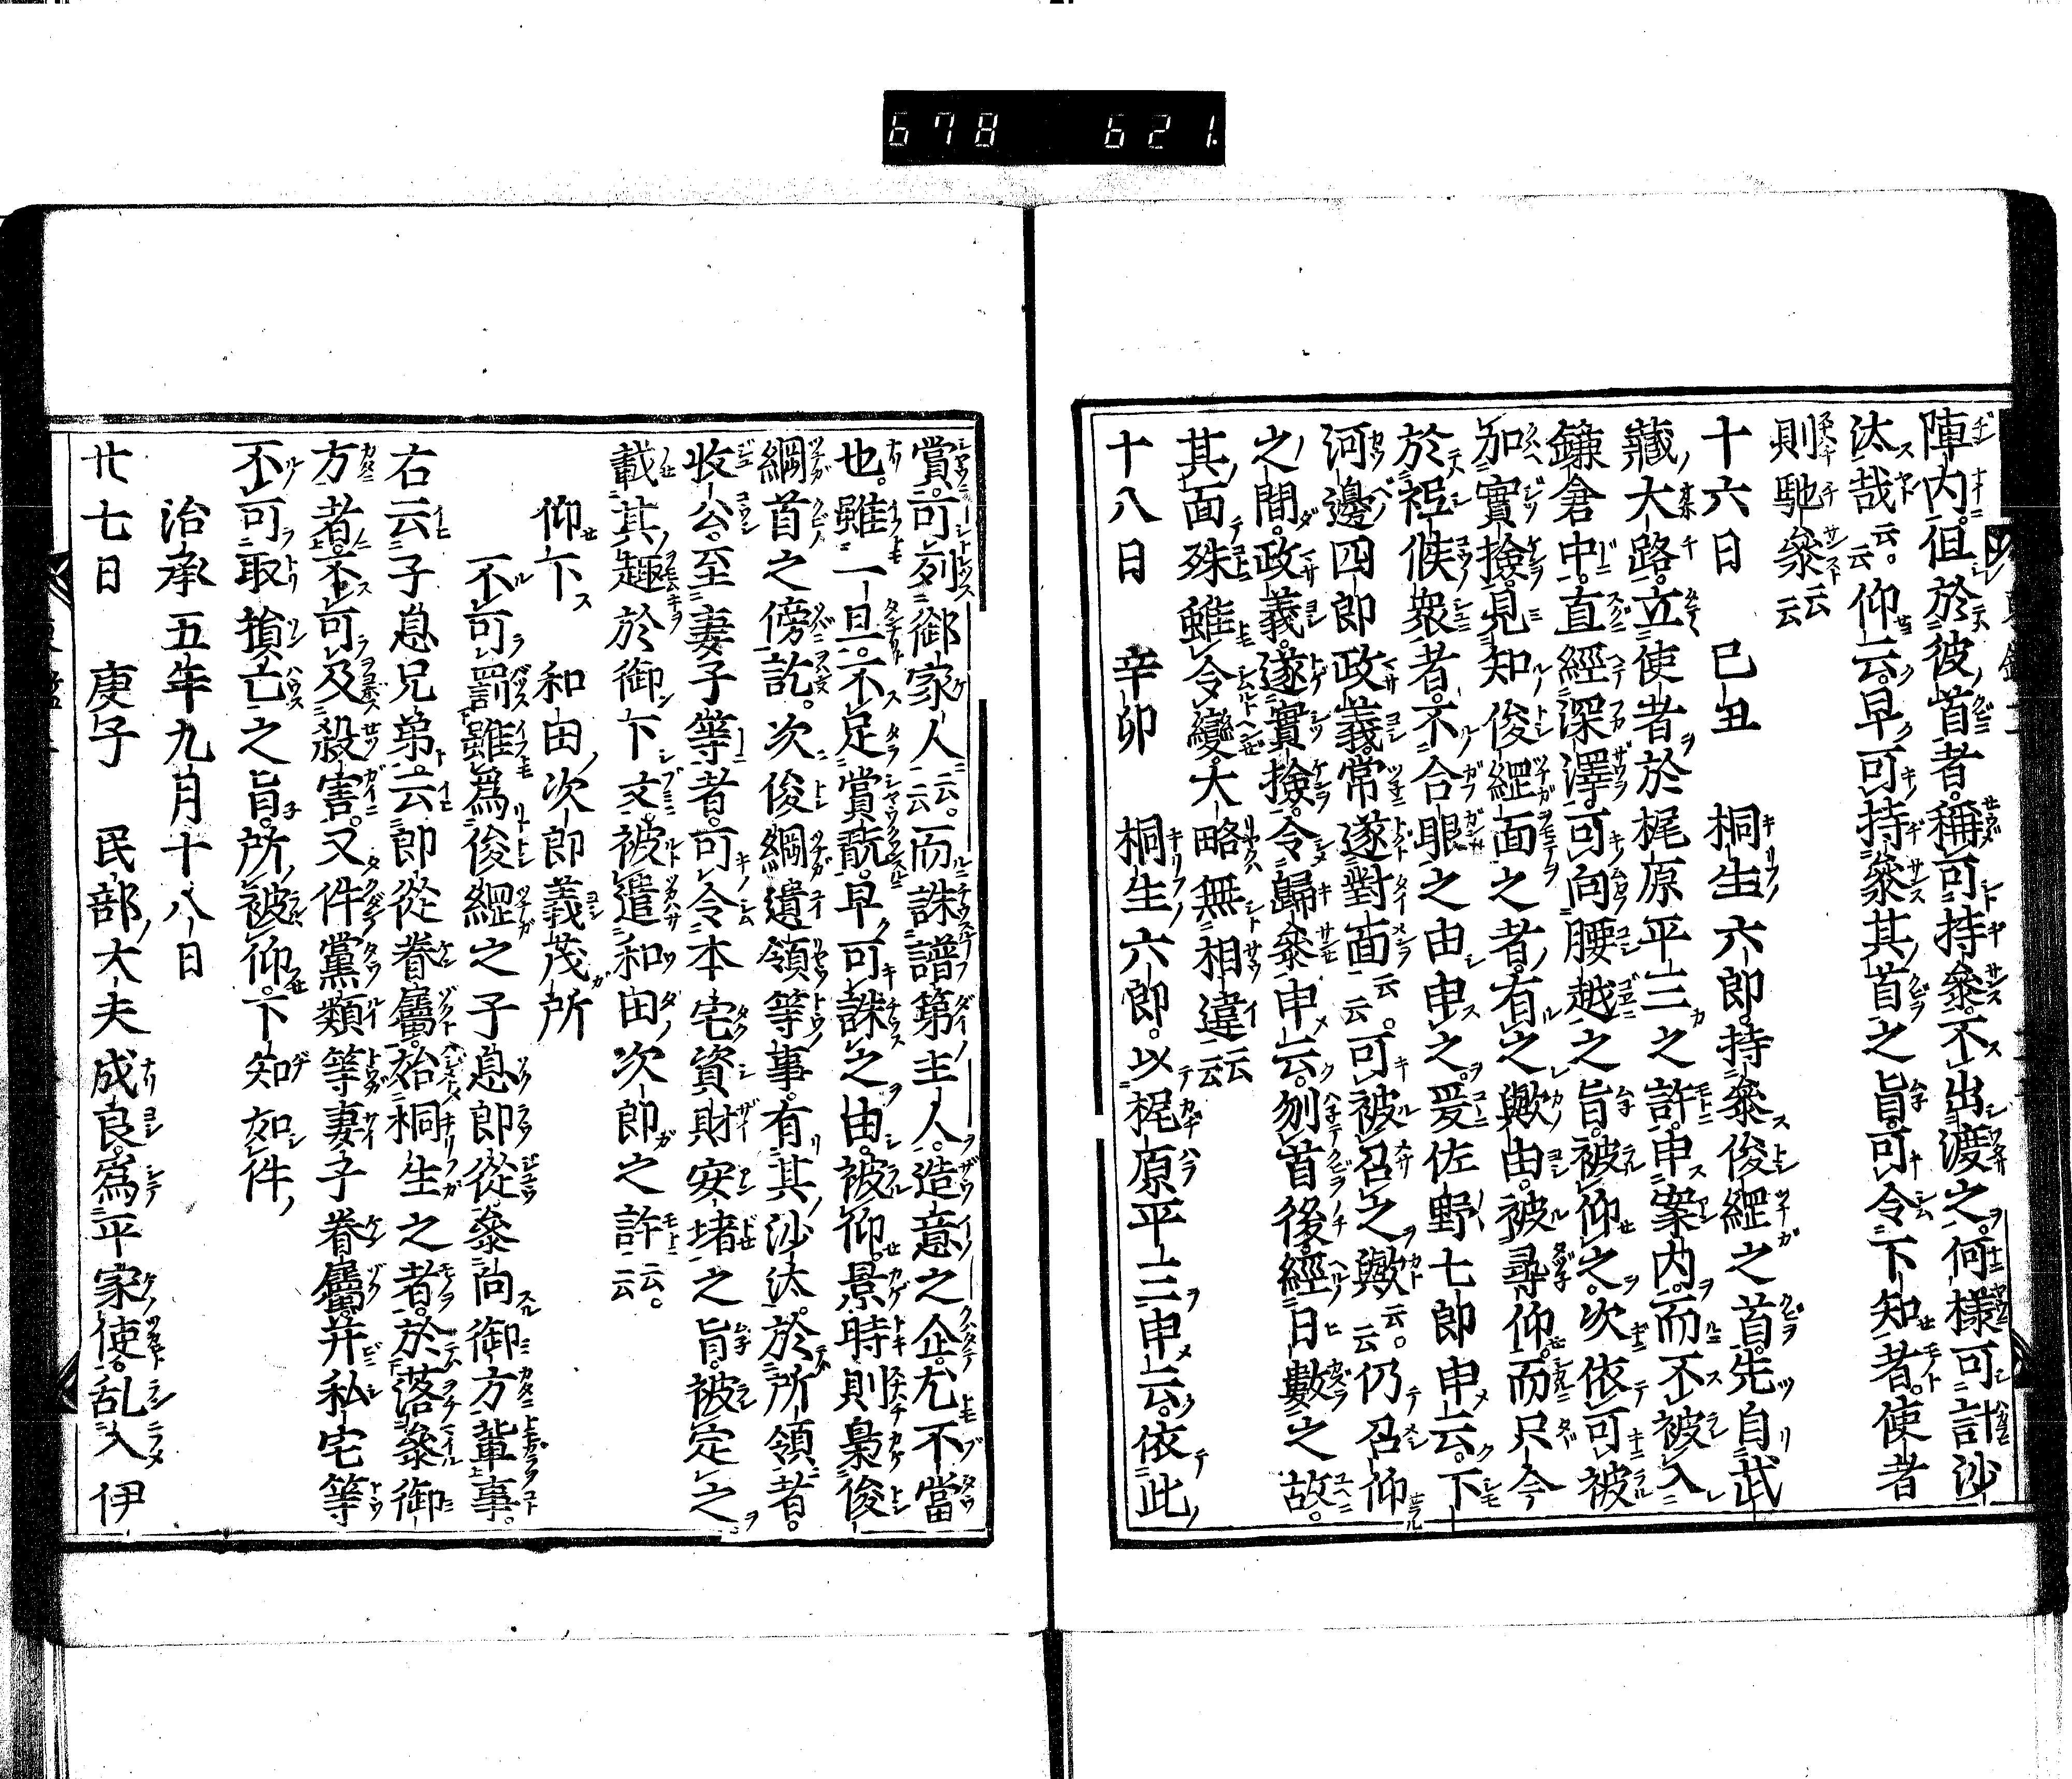 678 621.
陣内。但於彼首者。稱可持參。不出渡之。何樣可計沙
汰哉云云。仰云。早可持參其首之旨。可令下知者。使者
則馳參云云
十六日 己丑 桐生六郎。持參俊綱之首。先自武
藏大路。立使者於梶原平三之許。申案内。而不被入
鎌倉中。直經深澤。可向腰越之旨。被仰之。次依可被
加實撿。見知俊綱面之者。有之歟由。被尋仰。而只今
於祗候衆者。不合眼之由申之。爰佐野七郎申云。下
河邊四郎政義。常遂對面云云。可被召之歟云云。仍召仰
之間。政義。遂實撿。令歸參申云。刎首後。經日數之故。
其面殊雖令變。大略無相違云云
十八日 辛卯 桐生六郎。以梶原平三申云。依此
賞。可列御家人云云。而誅譜第主人。造意之企。尤不當
也。雖一旦。不足賞翫。早可誅之由。被仰。景時則梟俊
綱首之傍訖。次俊綱遺領等事。有其沙汰。於所領者。
收公。至妻子等者。可令本宅資財安堵之旨。被定之
載其趣於御下文。被遣和田次郎之許云云。
仰下 和田次郎義茂所
不可罰雖爲俊綱之子息郎從參向御方輩事。
右云子息兄弟。云郎從眷屬。始桐生之者。於落參御
方者。不可及殺害。又件黨類等妻子眷屬。并私宅等
不可取損亡之旨。所被仰下知如件、
治承五年九月十八日
廿七日 庚子 民部大夫成良。爲平家使。乱入伊